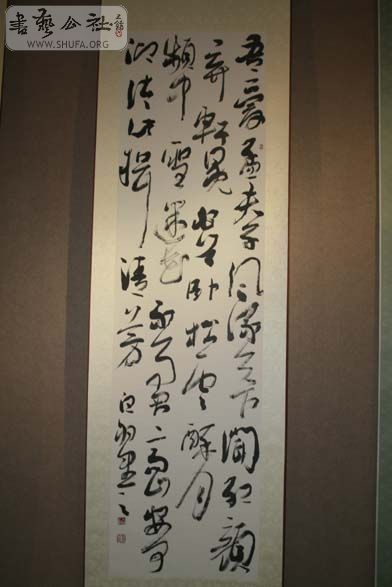 書藝公社
WWW.SHUFA.ORG
吾愛孟夫子風流天下聞紅顏
棄軒冕白首卧松雲醉月
頻中聖迷花不事君高山安可
仰徒此揖清芬